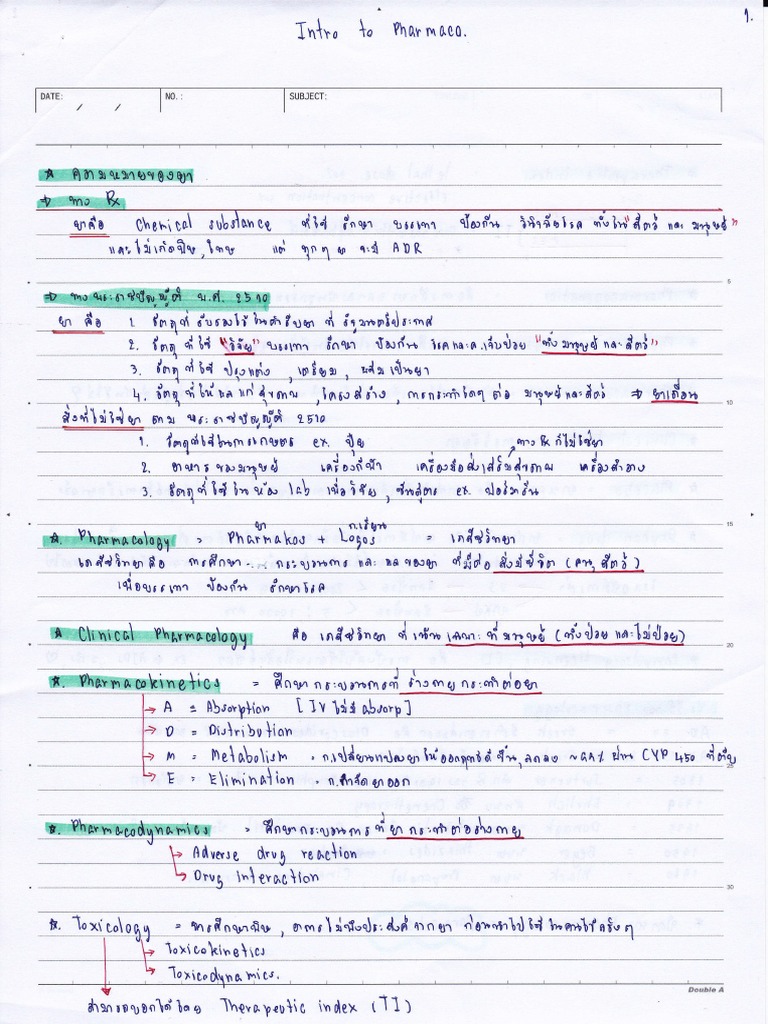 1.
Intro to Pharmaco.
DATE: / / NO.: SUBJECT:
* ความหมายของยา
⇒ ทาง ℞
ยาคือ Chemical substance ที่ใช้ รักษา บรรเทา ป้องกัน วินิจฉัยโรค ทั้งใน "สัตว์ และ มนุษย์"
และไม่เกิดพิษ, โทษ แต่ ทุกๆ จะมี ADR
5
⇒ ทางพระราชบัญญัติ พ.ศ. 2510
ยา คือ 1. วัตถุที่ รับรองไว้ ในตำรับยา ที่ รัฐมนตรีประกาศ
2. วัตถุ ที่ใช้ "วินิจฉัย" บรรเทา รักษา ป้องกัน โรคและค.เจ็บป่วย "ทั้งมนุษย์และสัตว์"
3. วัตถุที่ ใช้ ปรุงแต่ง, เตรียม, ผสมเป็นยา
4. วัตถุ ที่ให้ผลแก่สุขภาพ, โครงสร้าง, การกระทำใดๆ ต่อ มนุษย์และสัตว์ ⇒ ยาเถื่อน
10
สิ่งที่ไม่ใช่ยา ตาม พระราชบัญญัติ 2510
1. วัตถุที่ใช้ในการเกษตร ex. ปุ๋ย
ทาง ℞ ก็ไม่ใช่ยา
2. อาหารของมนุษย์ เครื่องกีฬา เครื่องมือส่งเสริมสุขภาพ เครื่องสำอาง
3. วัตถุที่ ใช้ ใน ห้อง lab เพื่อวิจัย, ชันสูตร ex. ฟอร์มาลีน
15
ยา ก.เรียน
* Pharmacology = Pharmakos + Logos = เภสัชวิทยา
เภสัชวิทยาคือ การศึกษา กระบวนการ และ ผลของยา ที่มีต่อ สิ่งมีชีวิต (คน, สัตว์)
เพื่อบรรเทา ป้องกัน รักษาโรค
* Clinical Pharmacology คือ เภสัชวิทยา ที่เน้นเฉพาะที่มนุษย์ (ทั้งป่วยและไม่ป่วย)
20
* Pharmacokinetics = ศึกษา กระบวนการที่ ร่างกายกระทำต่อยา
→ A = Absorption [IV ไม่มี absorp]
→ D = Distribution
→ M = Metabolism = ก.เปลี่ยนแปลงยาให้ออกฤทธิ์ดีขึ้น, ลดลง ผ่าน CYP 450 ที่ตับ
25
→ E = Elimination = ก.กำจัดยาออก
* Pharmacodynamics = ศึกษากระบวนการที่ ยากระทำต่อร่างกาย
→ Adverse drug reaction
→ Drug interaction
30
* Toxicology = การศึกษาพิษ, อาการไม่พึงประสงค์ จากยา ก่อนนำไปใช้ ในคนไข้จริงๆ
→ Toxicokinetics
→ Toxicodynamics.
Double A
สามารถบอกได้โดย Therapeutic index (TI)